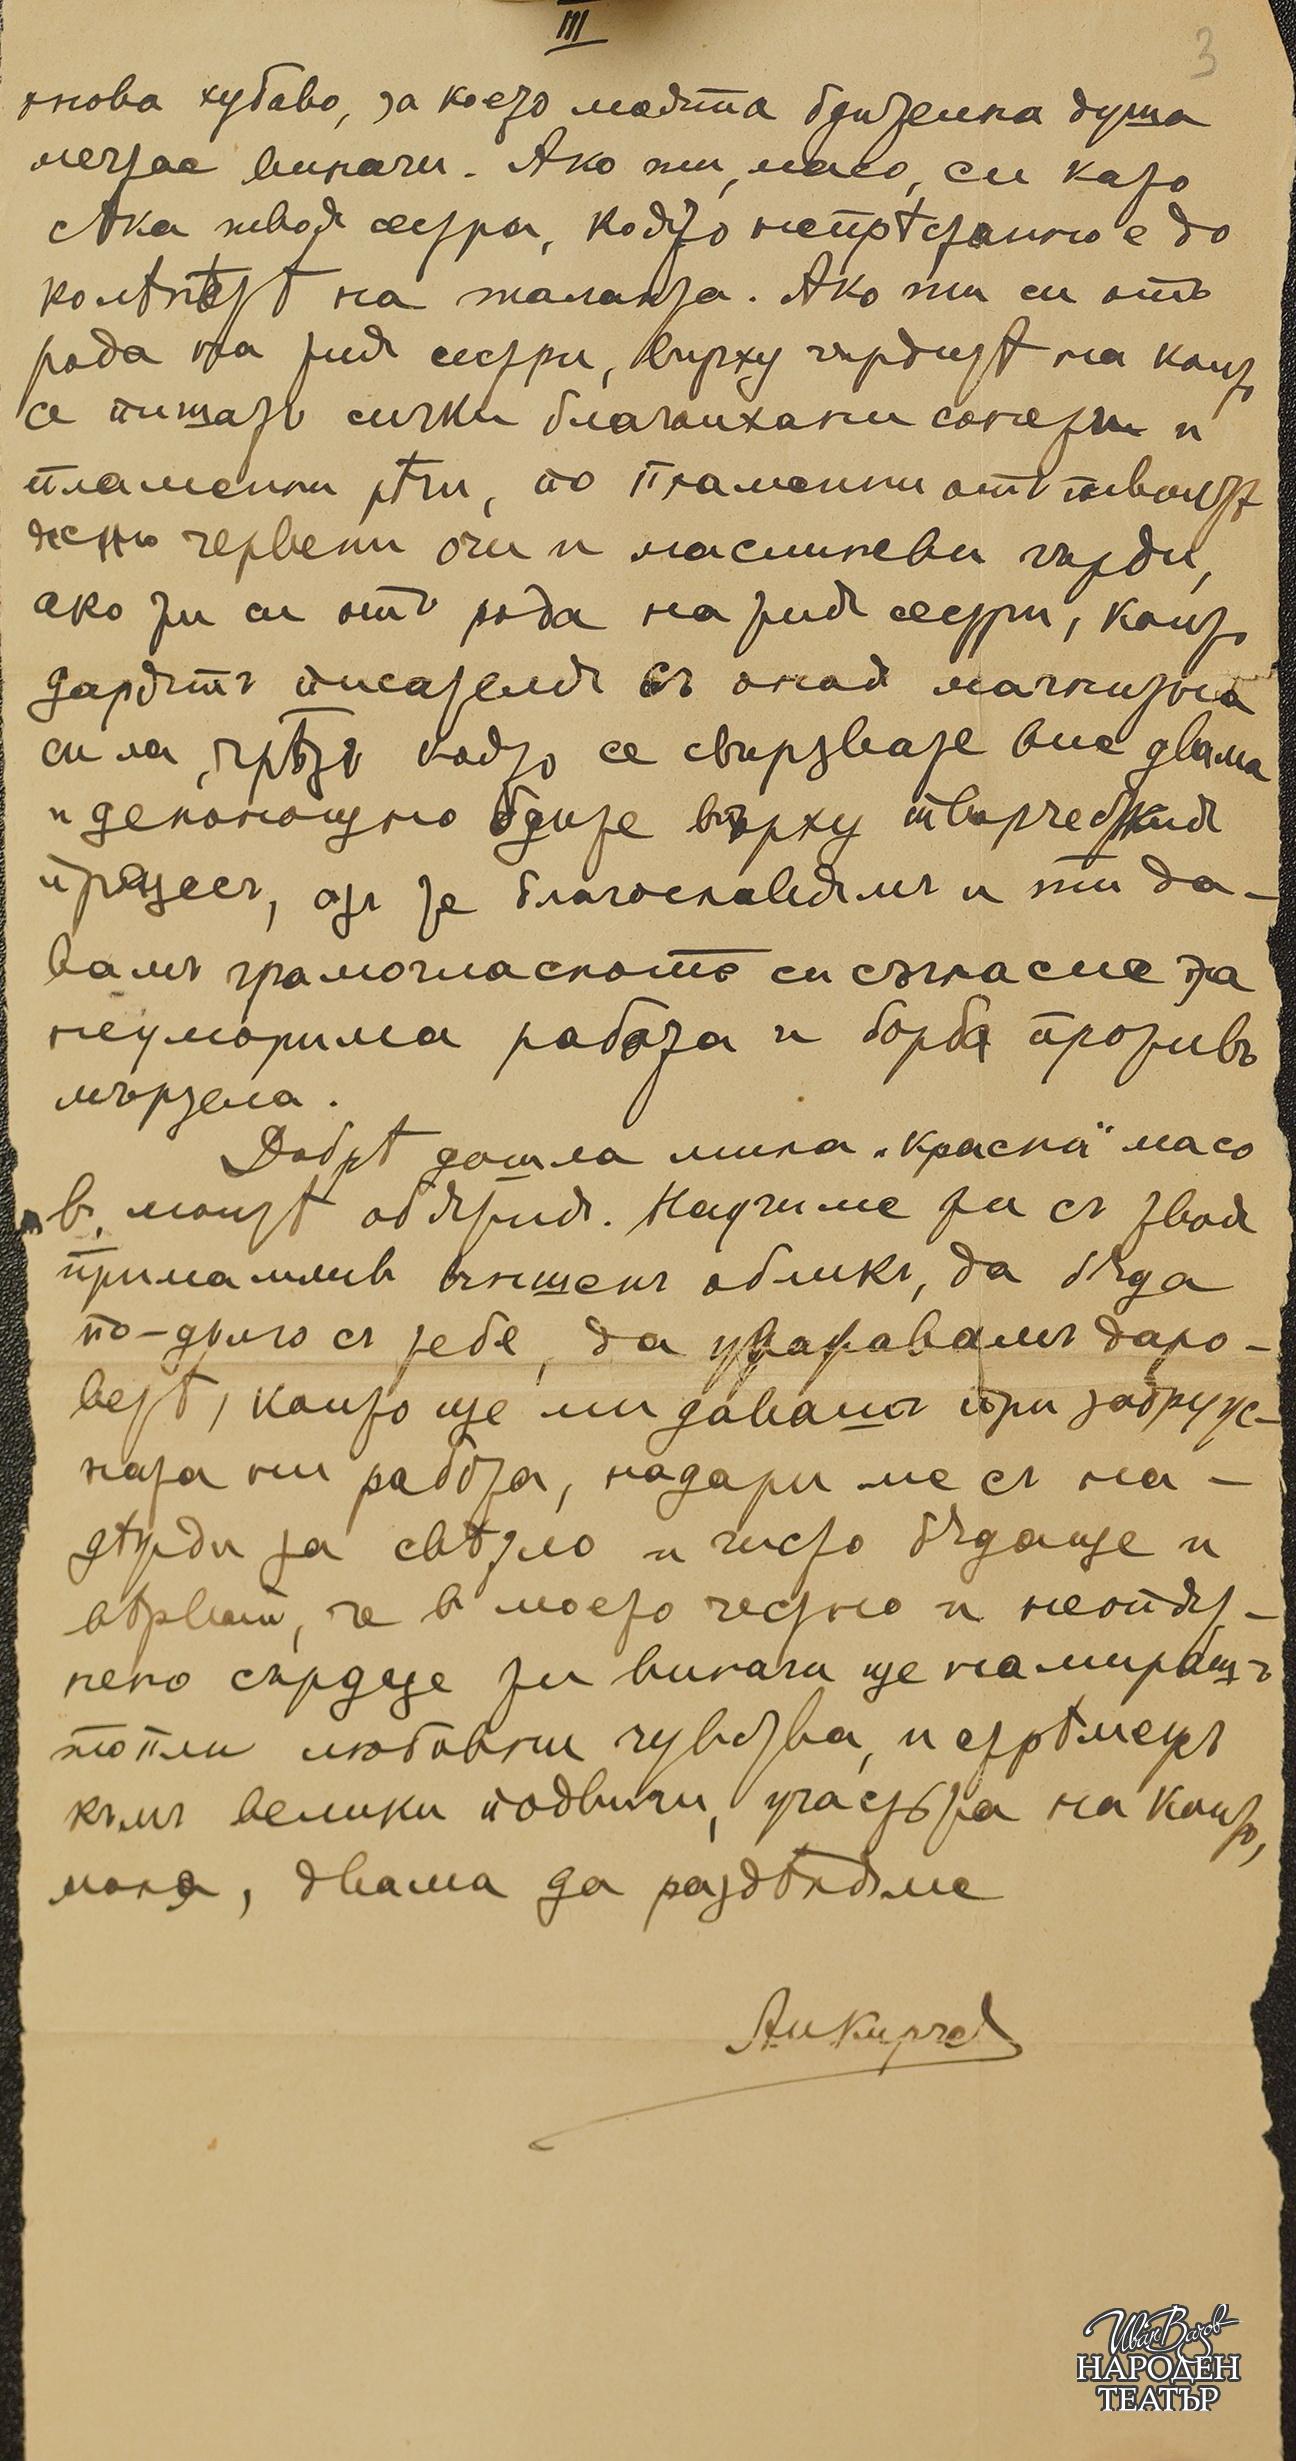 III
3
онова хубаво, за което моята бдителна душа
мечтае винаги. Ако ти, масо, си като
онова твоя сестра, която непрѣстанно е до
колѣнетѣ на таланта. Ако ти си отъ
рода на тия сестри, върху гърдитѣ на които
се пишатъ сички благоухани сонети и
пламенни рѣчи, по пламенни отъ твоитѣ
червени очи и маслиневи гърди,
ако ти си отъ рода на тия сестри, които
дарятъ писателя съ оная магнитна
сила, чрѣзъ която се свързвате вие двама
и денонощно бдите върху творческия
процесъ, азъ те благославямъ и ти да-
вамъ грамогласното си съгласие за
неуморима работа и борба противъ
мързела.
Добрѣ дошла мила „красна" масо
в моитѣ обятия. Научи ме ти съ твоя
примамлив външенъ обликъ, да бѫда
по-дълго съ тебе, да уважавамъ даро-
ветѣ, които ще ми давашъ при задруж-
ната ни работа, надари ме съ на-
дѣжди за свѣтло и чисто бѫдаще и
вѣрвай, че в моето честно и неопят-
нено сърдце ти винаги ще намирашъ
топли любовни чувства, и стрѣмежъ
къмъ велики подвизи, участьта на които,
нека, двама да раздѣляме
Ан Кирчев
Иван Вазов
НАРОДЕН
ТЕАТЪР